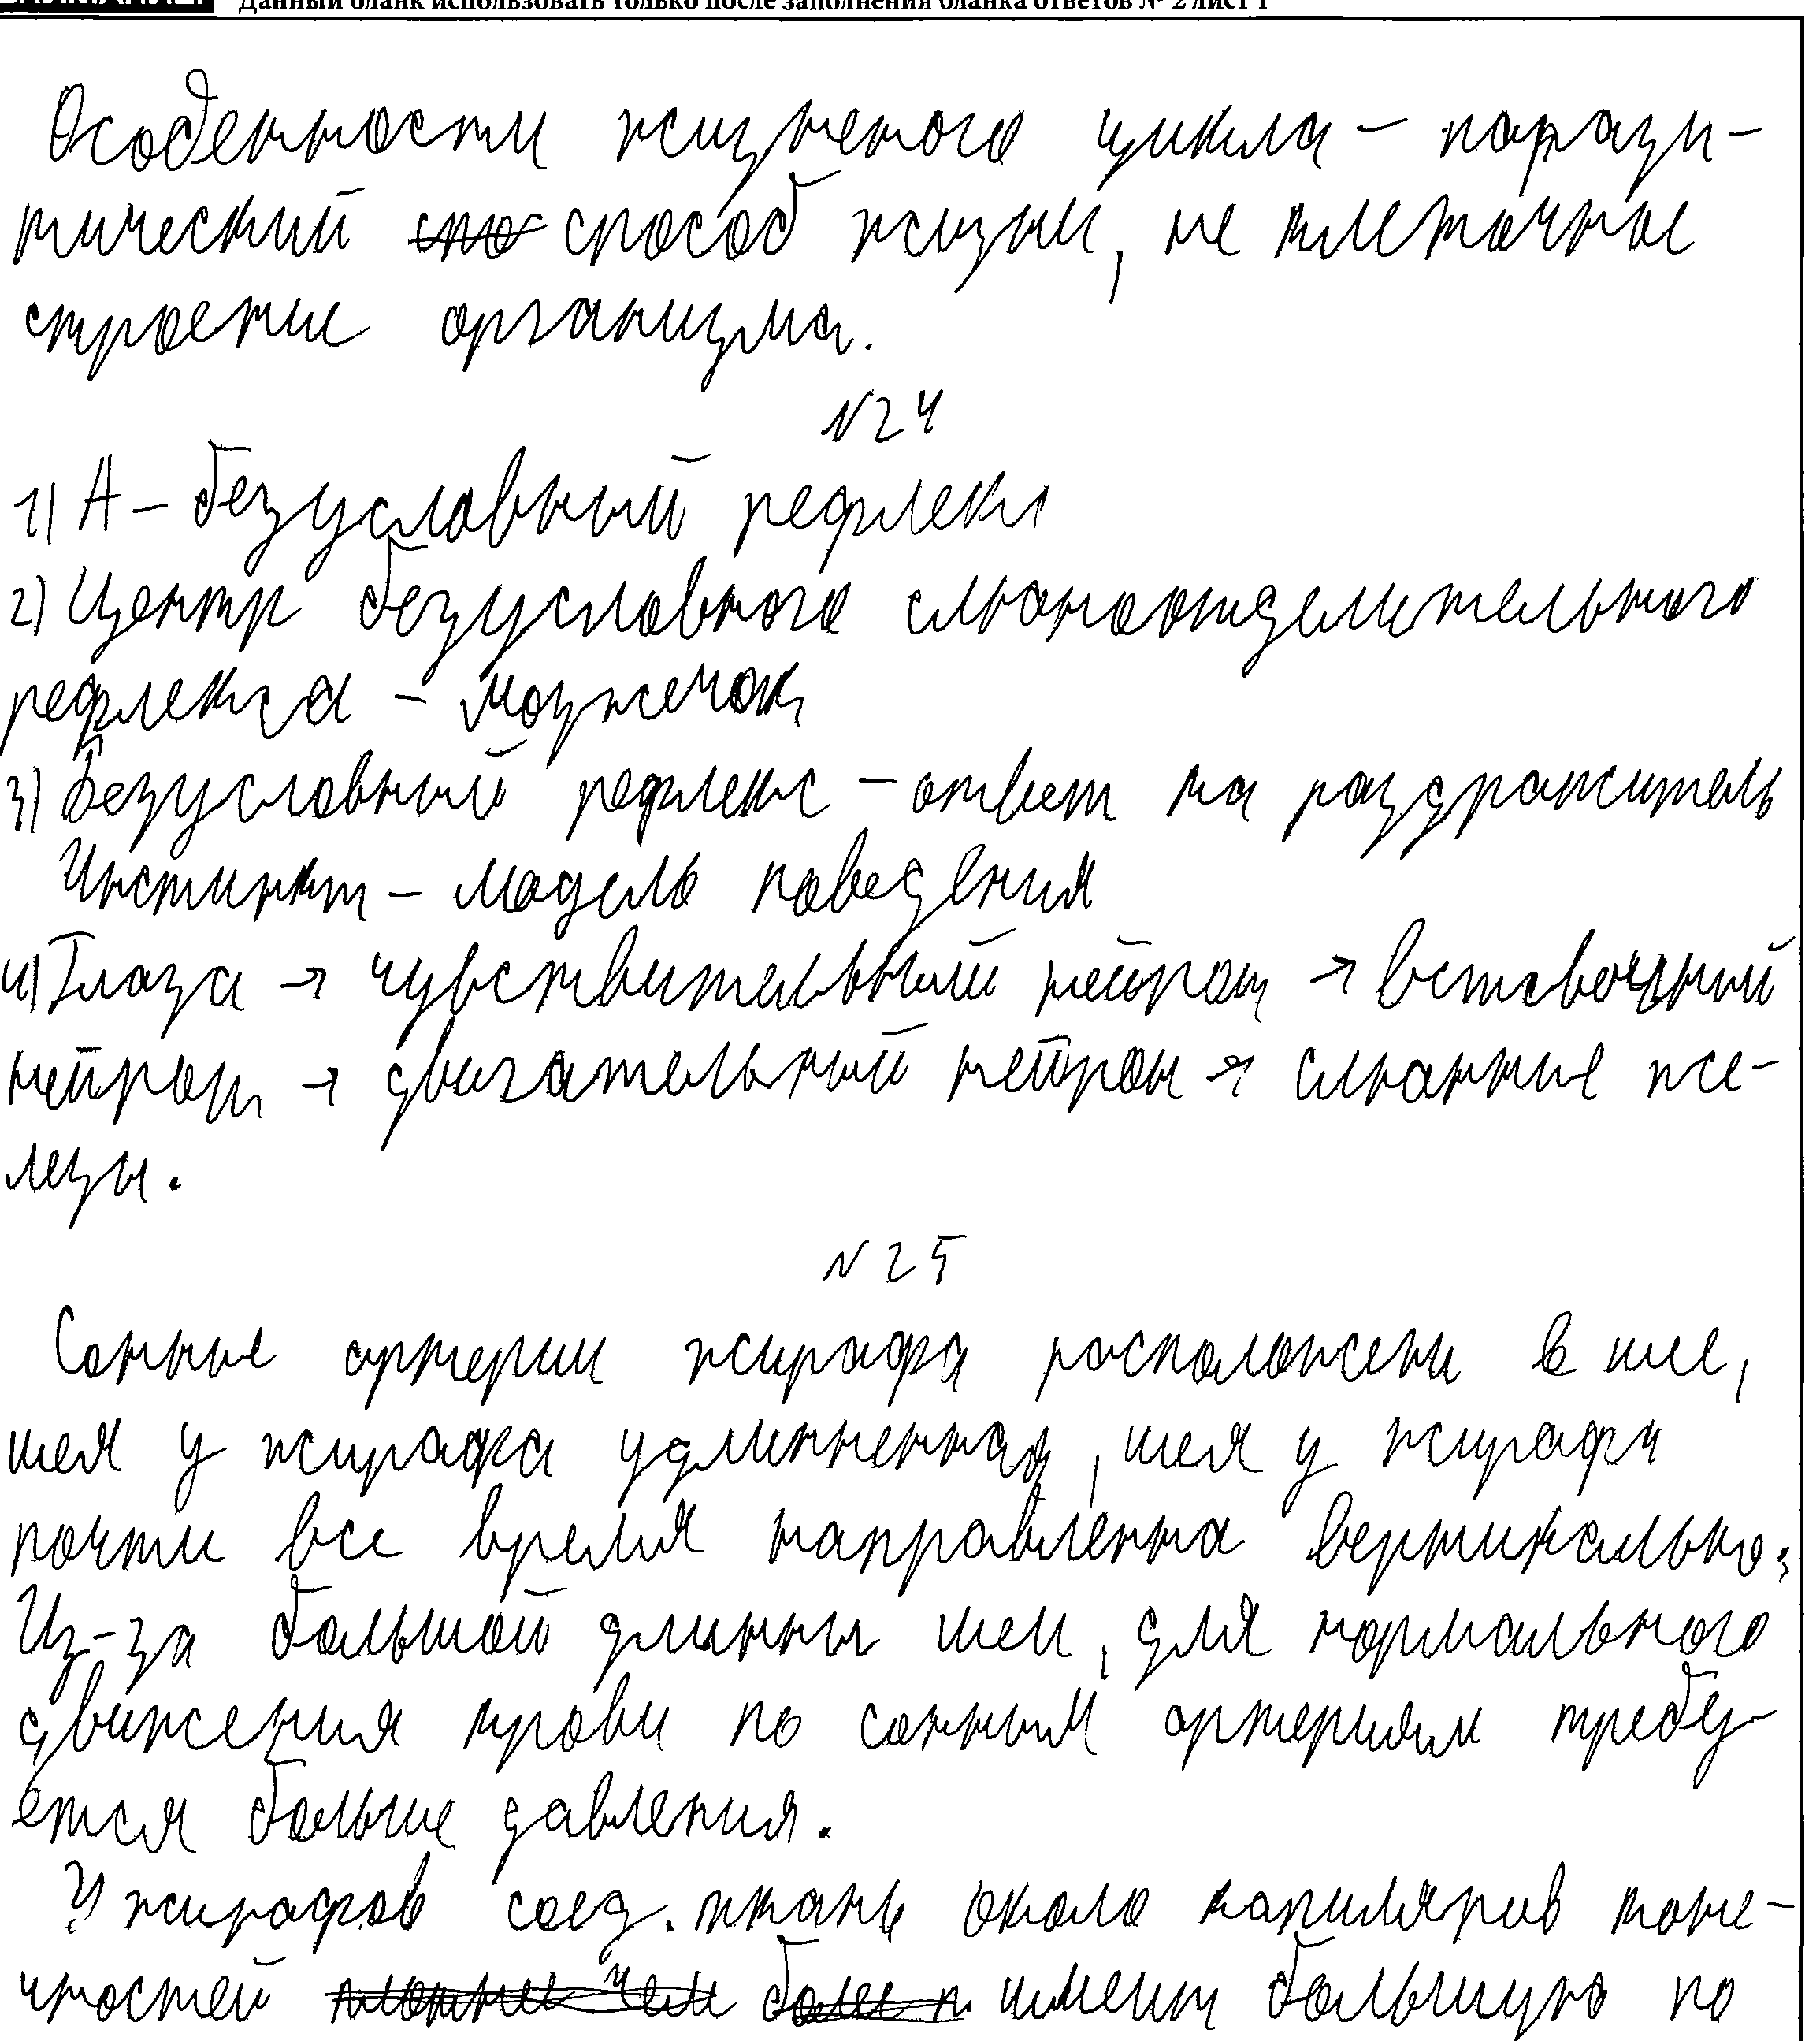 Данный бланк использовать только после заполнения бланка ответов № 2 лист 1
Особенности жизненого цикла – парази-
тический способ жизни, не клеточное
строение организма.
№24
1) А – безусловный рефлекс
2) Центр безусловного слюноотделительного
рефлекса – мозжечок
3) Безусловный рефлекс – ответ на раздражитель
Инстинкт – модель поведения
4) Глаза → чувствительный нейрон → вставочный
нейрон → двигательный нейрон → слюнные же-
лезы.
№25
Сонные артерии жирафа расположены в шее,
шея у жирафа удлинненная, шея у жирафа
почти все время направленна вертикально.
Из-за большой длинны шеи, для нормального
движения крови по сонным артериям требу-
ется больше давления.
У жирафов соед. ткань около капиляров коне-
чностей имеет большую по